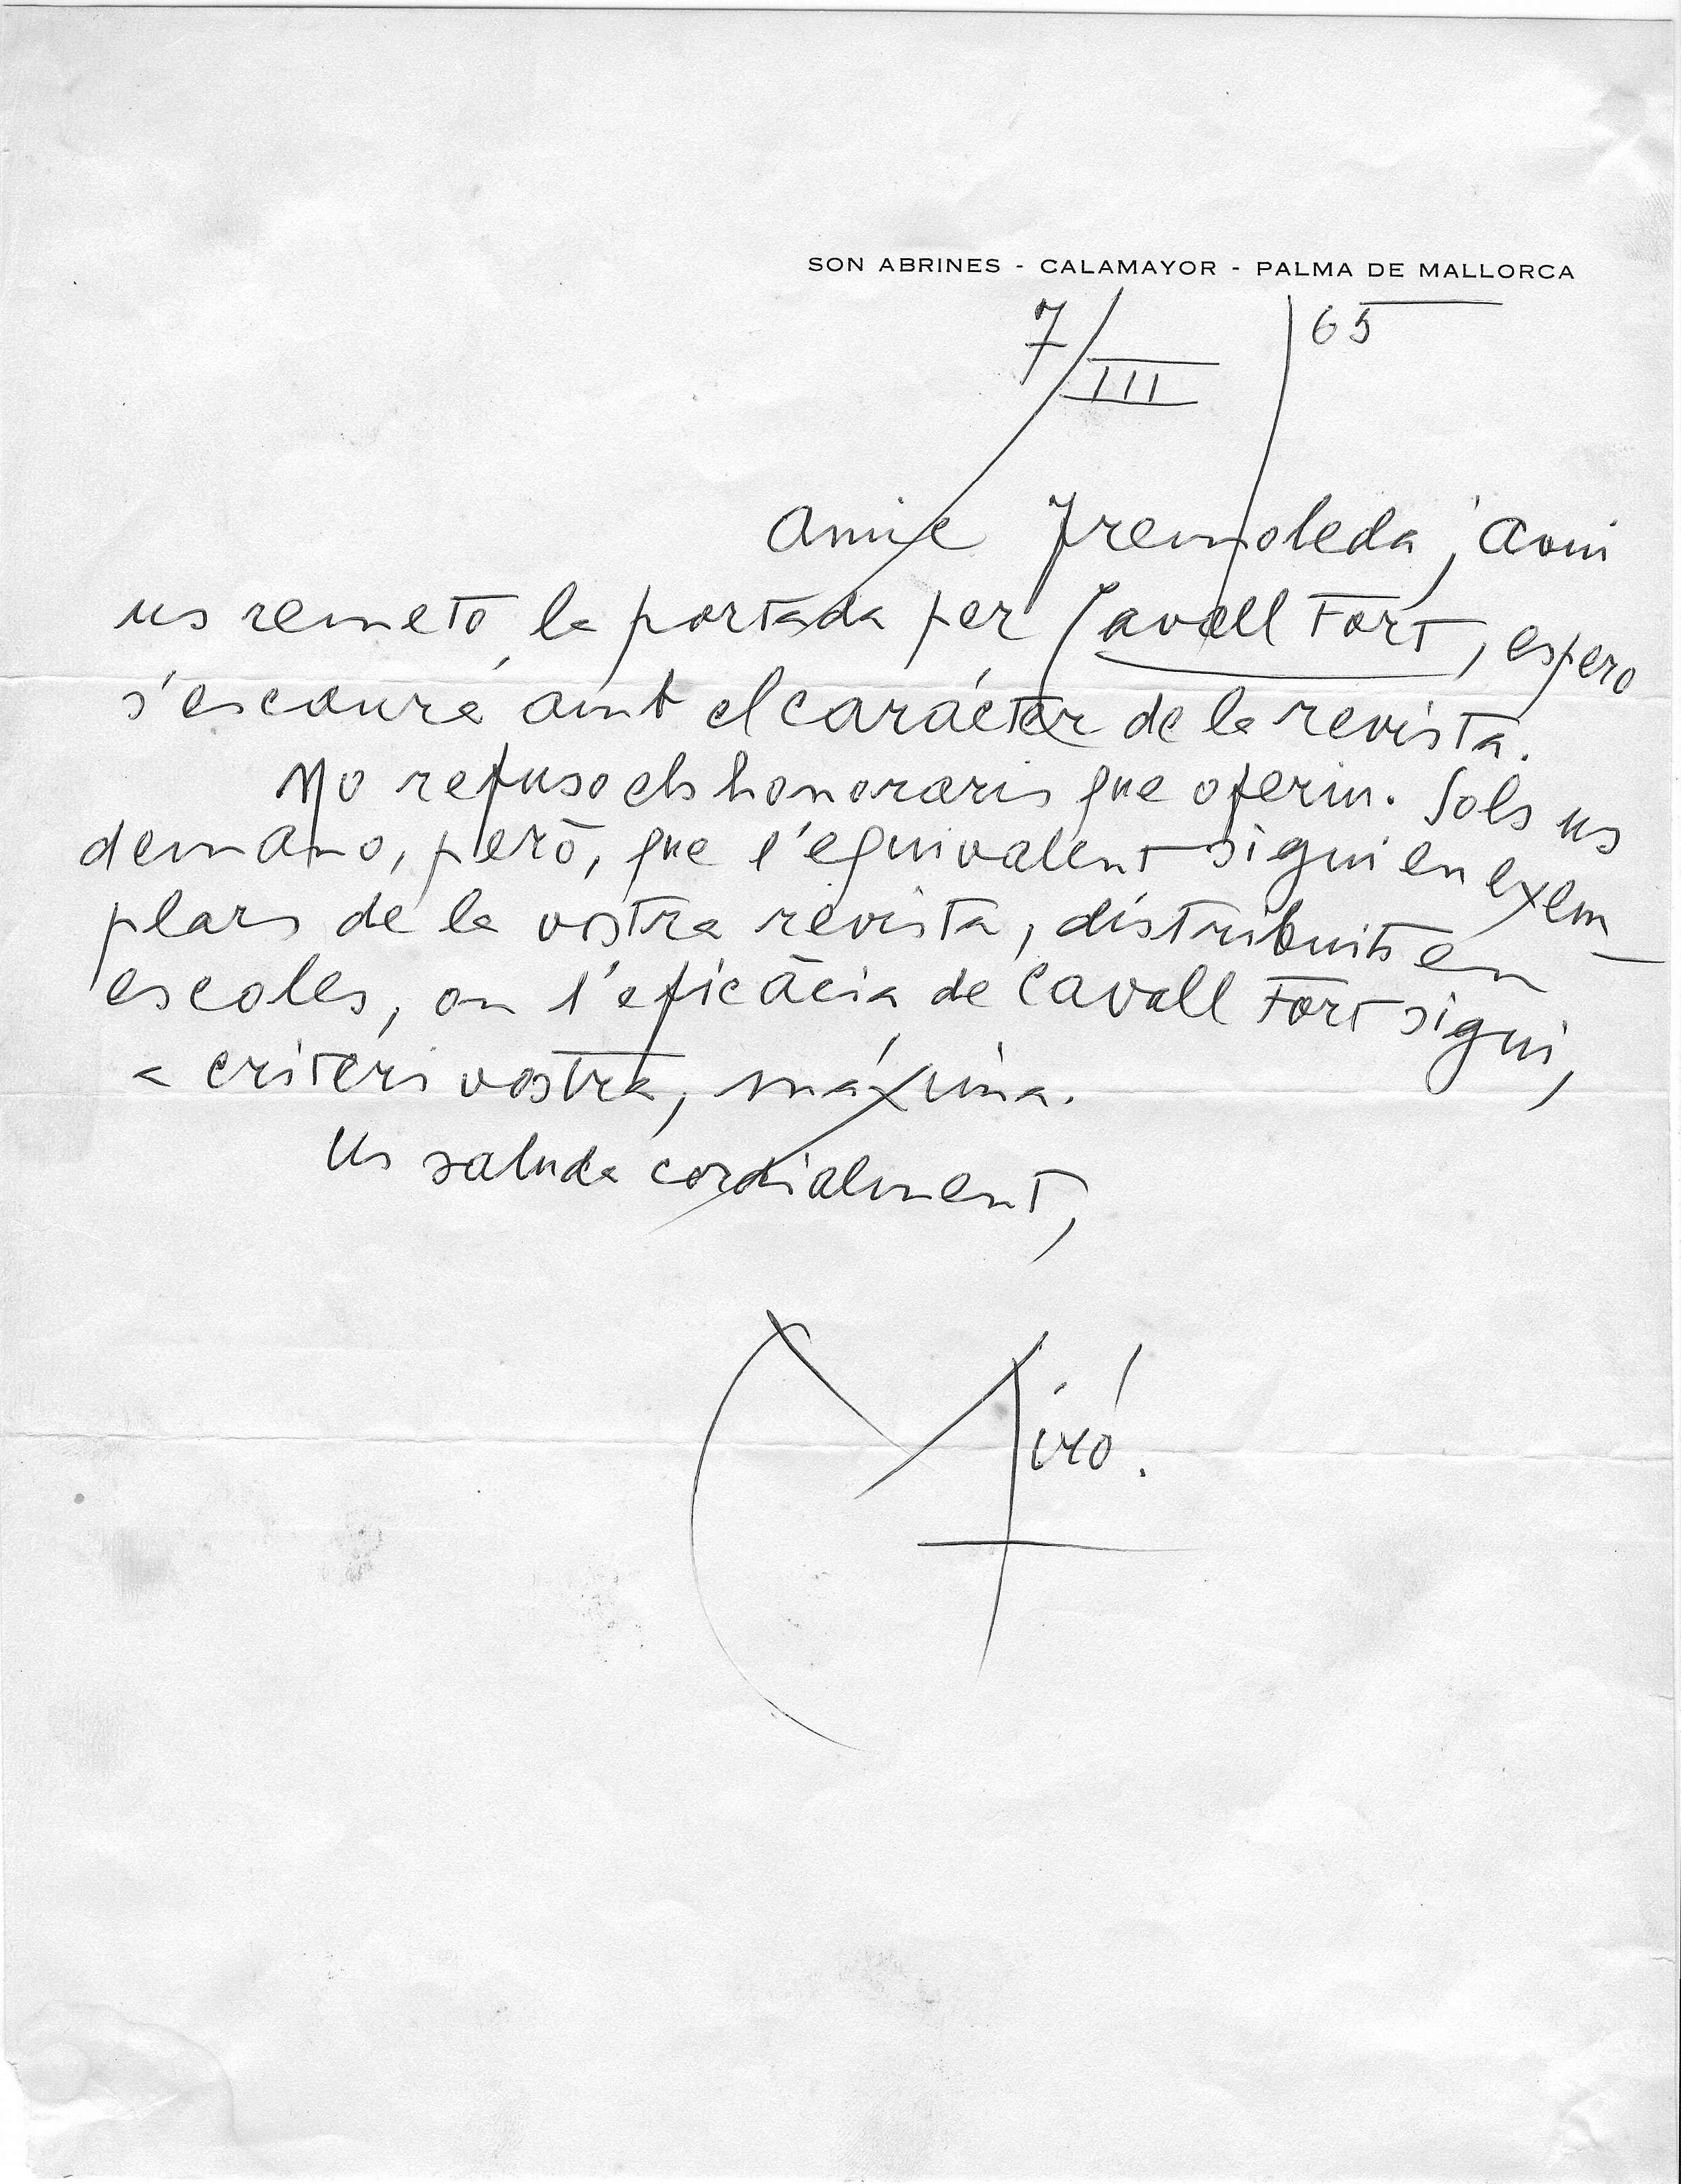 SON ABRINES - CALAMAYOR - PALMA DE MALLORCA
7/III/65
Amic Tremoleda, avui
us remeto la portada per Cavall Fort, espero
s'escauré amb el carácter de la revista.
No refuso els honoraris que oferiu. Sols us
demano, però, que l'equivalent sigui en exem-
plars de la vostra revista, distribuits en
escoles, on l'eficàcia de Cavall Fort sigui,
a criteri vostra, máxima.
Us saluda cordialment,
Miró.